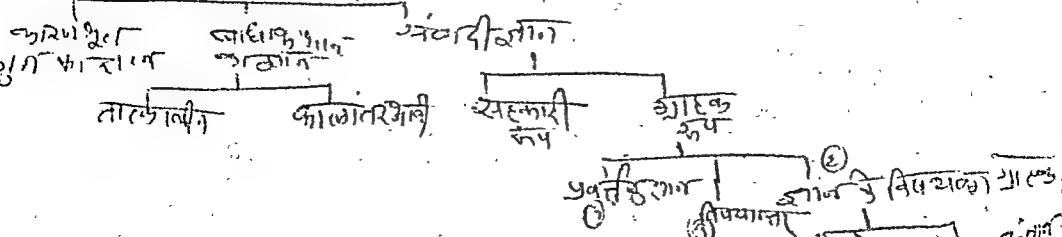 कारणभूत
गुण का ज्ञान
बाधकाभाव
का ज्ञान
संवादी ज्ञान
तात्कालीन
कालांतरभावी
सहकारी
रूप
ग्राहक
रूप
प्रवृत्त ज्ञान
ज्ञान के विषयका ग्राहक